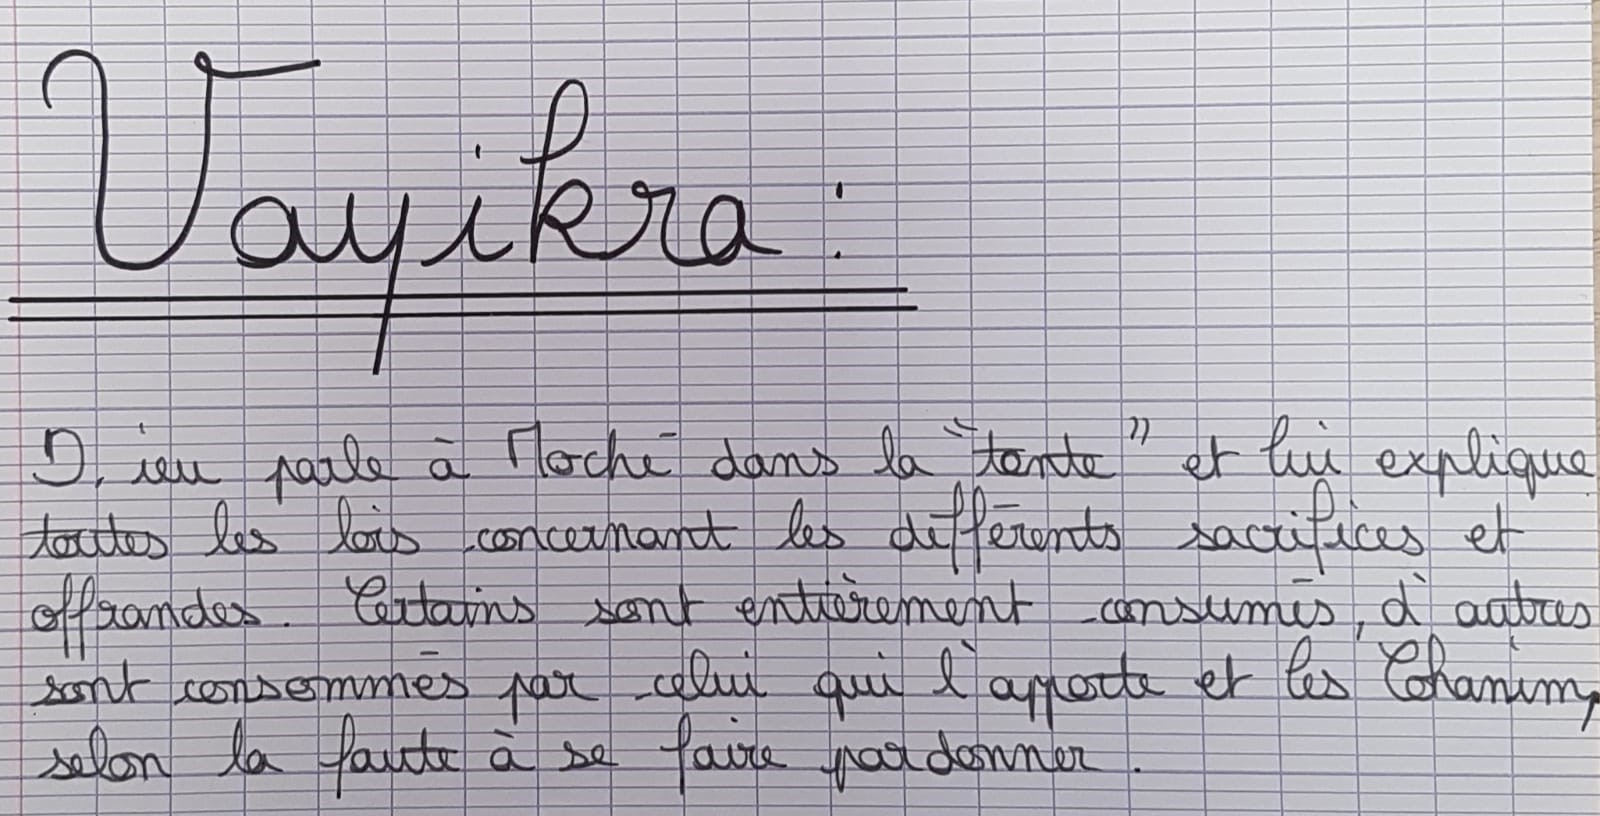 Vayikra :
D.ieu parle à Moché dans la "tente" et lui explique
toutes les lois concernant les différents sacrifices et
offrandes. Certains sont entièrement consumés, d'autres
sont consommés par celui qui l'apporte et les Cohanim,
selon la faute à se faire pardonner.